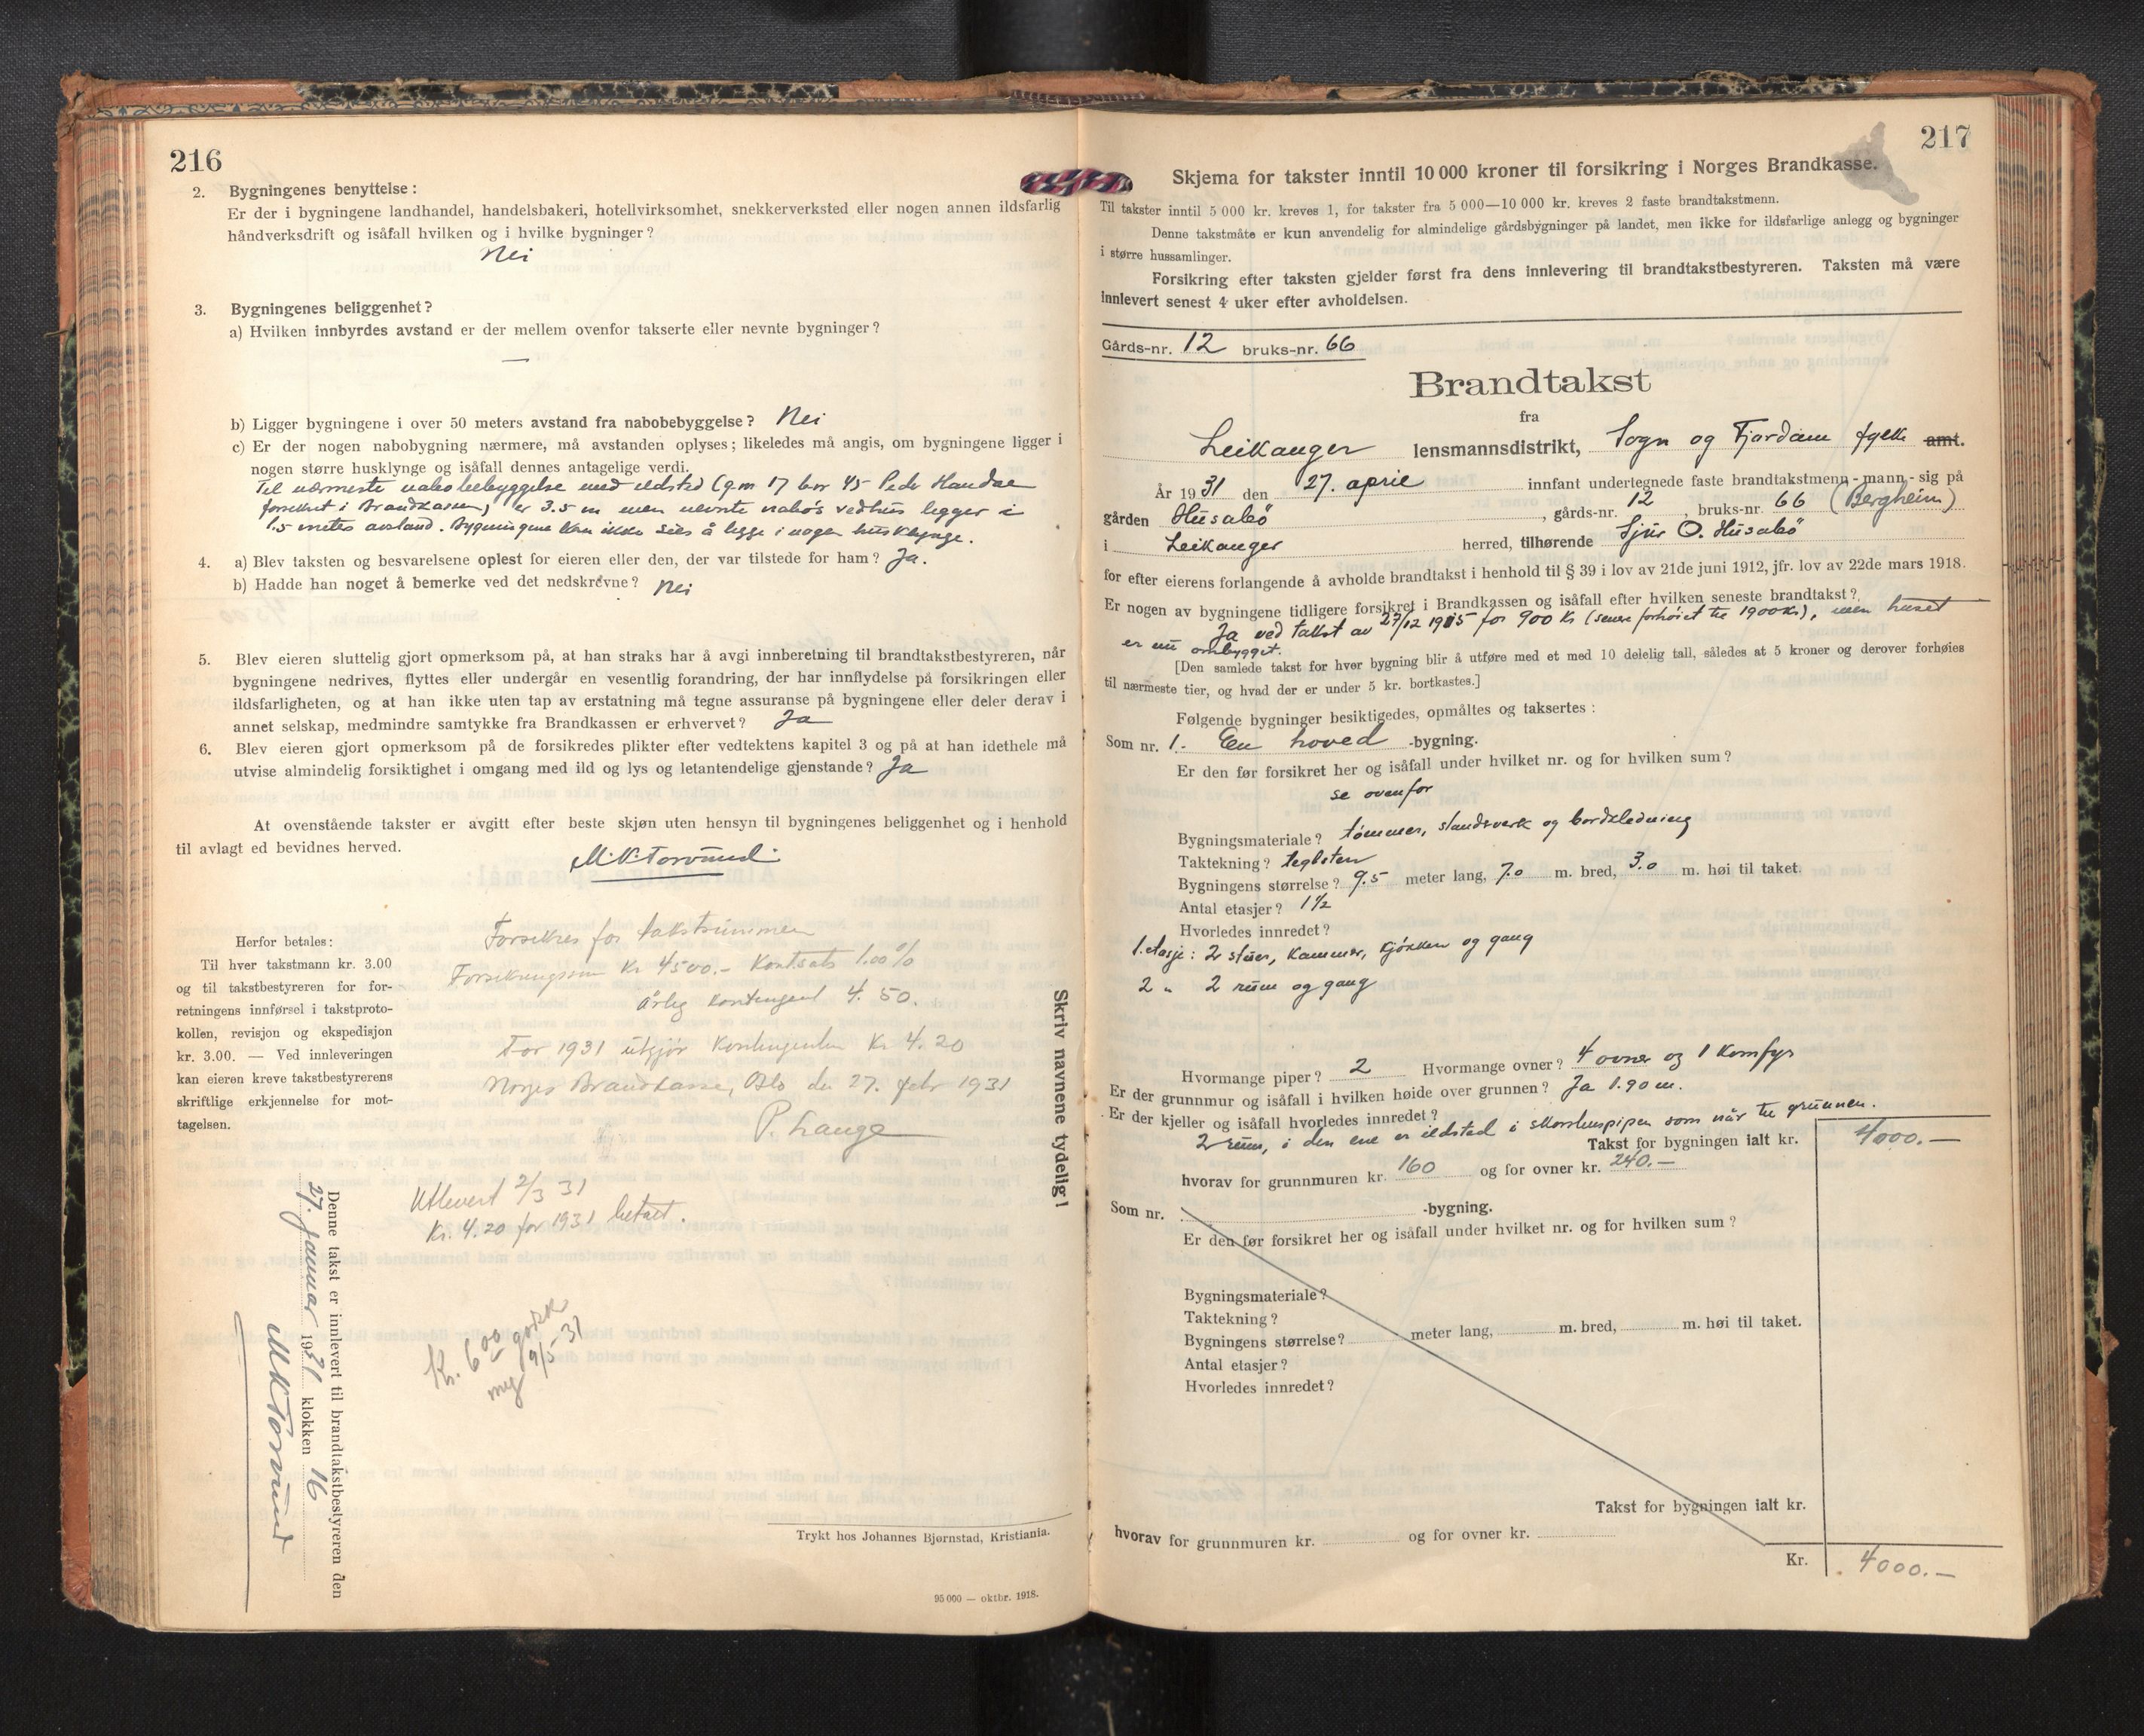 216
2. Bygningenes benyttelse:
Er der i bygningene landhandel, handelsbakeri, hotellvirksomhet, snekkerverksted eller nogen annen ildsfarlig
håndverksdrift og isåfall hvilken og i hvilke bygninger?
Nei
3. Bygningenes beliggenhet?
a) Hvilken innbyrdes avstand er der mellem ovenfor takserte eller nevnte bygninger?
—
b) Ligger bygningene i over 50 meters avstand fra nabobebyggelse? Nei
c) Er der nogen nabobygning nærmere, må avstanden oplyses; likeledes må angis, om bygningene ligger i
nogen større husklynge og isåfall dennes antagelige verdi.
Til nærmeste nabobebyggelse med ildsted (g.nr 17 bnr 45 Peder
forsikret i Brandkassen) er 3.5 m men nevnte nabos vedhus ligger i
1.5 meters avstand. Bygningene kan ikke sies å ligge i nogen husklynge.
4. a) Blev taksten og besvarelsene oplest for eieren eller den, der var tilstede for ham? Ja.
b) Hadde han noget å bemerke ved det nedskrevne? Nei
5. Blev eieren sluttelig gjort opmerksom på, at han straks har å avgi innberetning til brandtakstbestyreren, når
bygningene nedrives, flyttes eller undergår en vesentlig forandring, der har innflydelse på forsikringen eller
ildsfarligheten, og at han ikke uten tap av erstatning må tegne assuranse på bygningene eller deler derav i
annet selskap, medmindre samtykke fra Brandkassen er erhvervet? Ja
6. Blev eieren gjort opmerksom på de forsikredes plikter efter vedtektens kapitel 3 og på at han idethele må
utvise almindelig forsiktighet i omgang med ild og lys og letantendelige gjenstande? Ja
At ovenstående takster er avgitt efter beste skjøn uten hensyn til bygningenes beliggenhet og i henhold
til avlagt ed bevidnes herved.
M. K. Torvund
Herfor betales:
Til hver takstmann kr. 3.00
og til takstbestyreren for for-
retningens innførsel i takstproto-
kollen, revisjon og ekspedisjon
kr. 3.00. — Ved innleveringen
kan eieren kreve takstbestyrerens
skriftlige erkjennelse for mot-
tagelsen.
Forsikres for takstsummen
Forsikringssum Kr 4500.- Kontsats 1.00%
Årlig kontingent 4.50.
For 1931 utgjør kontingenten Kr 4.20
Norges Brandkasse, Oslo den 27. febr 1931
P. Lange
Utlevert 2/3 31
Kr. 4.20 for 1931 betalt.
Kr. 6.00
9/5-31
Skriv navnene tydelig!
Denne takst er innlevert til brandtakstbestyreren den
27. januar 1931 klokken 16
M K Torvund
Trykt hos Johannes Bjørnstad, Kristiania.
95 000 — oktbr. 1918.
217
Skjema for takster inntil 10 000 kroner til forsikring i Norges Brandkasse.
Til takster inntil 5 000 kr. kreves 1, for takster fra 5 000—10 000 kr. kreves 2 faste brandtakstmenn.
Denne takstmåte er kun anvendelig for almindelige gårdsbygninger på landet, men ikke for ildsfarlige anlegg og bygninger
i større hussamlinger.
Forsikring efter taksten gjelder først fra dens innlevering til brandtakstbestyreren. Taksten må være
innlevert senest 4 uker efter avholdelsen.
Gårds-nr. 12 bruks-nr. 66
Brandtakst
fra
Leikanger lensmannsdistrikt, Sogn og Fjordane fylke amt.
År 1931 den 27. april innfant undertegnede faste brandtakstmenn - mann - sig på
gården Husabø, gårds-nr. 12, bruks-nr. 66 (Bergheim)
i Leikanger herred, tilhørende Sjur O. Husabø
for efter eierens forlangende å avholde brandtakst i henhold til § 39 i lov av 21de juni 1912, jfr. lov av 22de mars 1918.
Er nogen av bygningene tidligere forsikret i Brandkassen og isåfall efter hvilken seneste brandtakst?
Ja ved takst av 27/12 1915 for 900 Kr (senere forhøiet til 1900 Kr), men huset
er nu ombygget.
[Den samlede takst for hver bygning blir å utføre med et med 10 delelig tall, således at 5 kroner og derover forhøies
til nærmeste tier, og hvad der er under 5 kr. bortkastes.]
Følgende bygninger besiktigedes, opmåltes og taksertes:
Som nr. 1. En hoved -bygning.
Er den før forsikret her og isåfall under hvilket nr. og for hvilken sum?
se ovenfor
Bygningsmateriale? tømmer, standsverk og bordkledning
Taktekning? teglsten
Bygningens størrelse? 9.5 meter lang, 7.0 m. bred, 3.0 m. høi til taket.
Antal etasjer? 1½
Hvorledes innredet?
1. etasje: 2 stuer, kammer, kjøkken og gang
2 " 2 rum og gang
Hvormange piper? 2 Hvormange ovner? 4 ovner og 1 komfyr
Er der grunnmur og isåfall i hvilken høide over grunnen? Ja 1.90 m.
Er der kjeller og isåfall hvorledes innredet?
2 rum, i den ene er ildsted i skorstenspipen som når til grunnen.
Takst for bygningen ialt kr. 4000.—
hvorav for grunnmuren kr. 160 og for ovner kr. 240.—
Som nr. -bygning.
Er den før forsikret her og isåfall under hvilket nr. og for hvilken sum?
Bygningsmateriale?
Taktekning?
Bygningens størrelse? meter lang, m. bred, m. høi til taket.
Antal etasjer?
Hvorledes innredet?
Takst for bygningen ialt kr.
hvorav for grunnmuren kr. og for ovner kr.
Kr. 4000.—